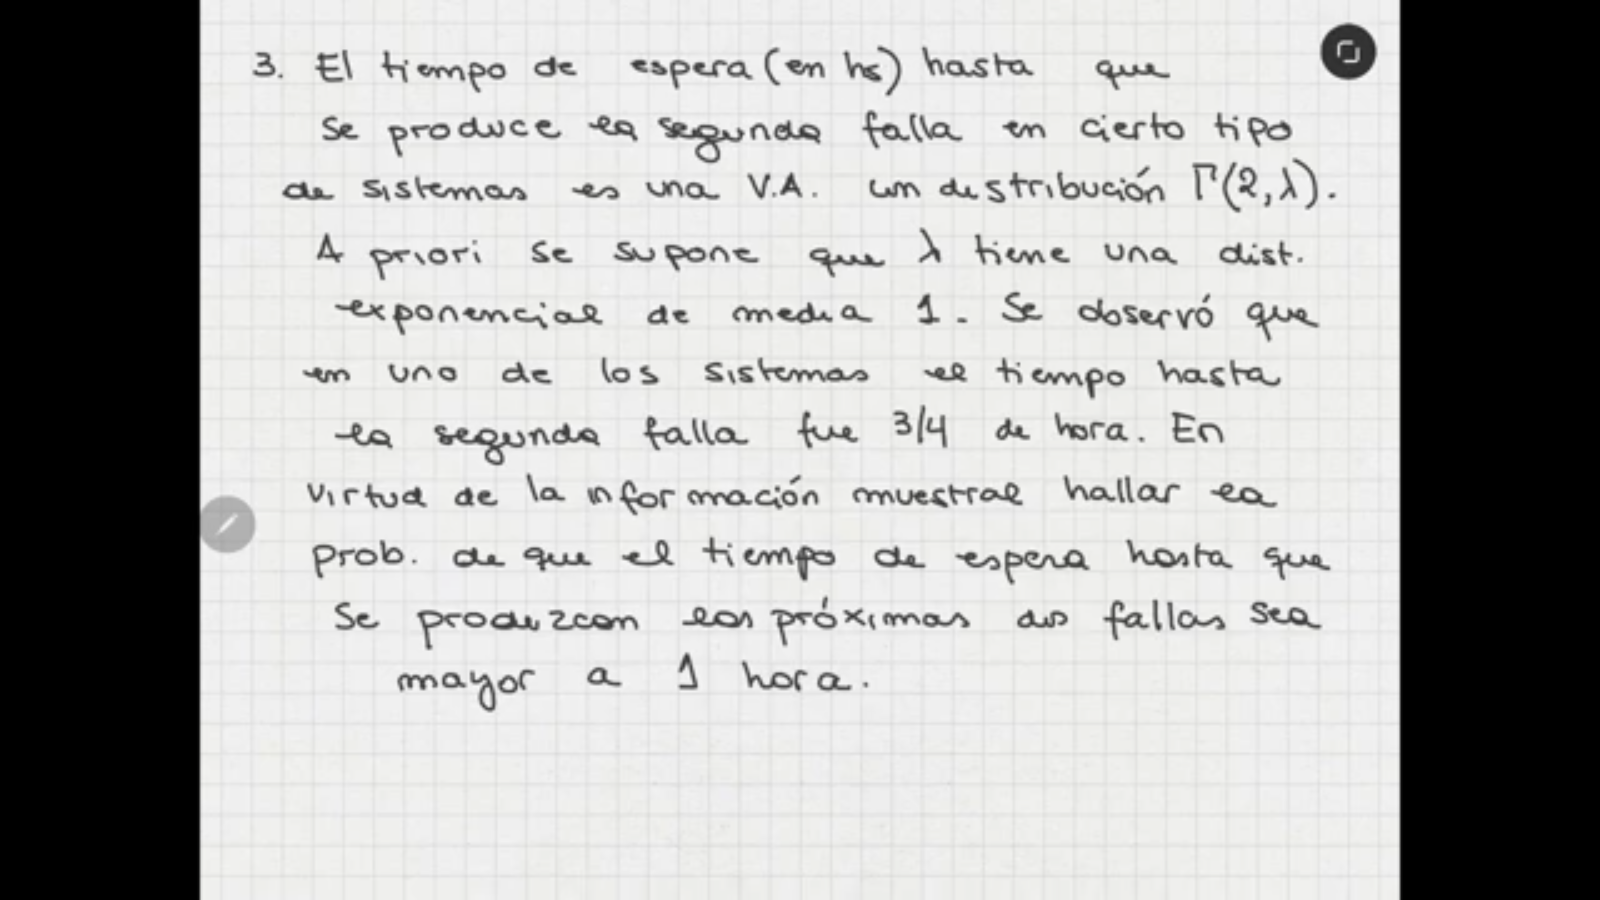 3. El tiempo de espera (en hs) hasta que
se produce la segunda falla en cierto tipo
de sistemas es una V.A. con distribución Γ(2,λ).
A priori se supone que λ tiene una dist.
exponencial de media 1. Se observó que
en uno de los sistemas el tiempo hasta
la segunda falla fue 3/4 de hora. En
virtud de la información muestral hallar la
prob. de que el tiempo de espera hasta que
se produzcan las próximas dos fallas sea
mayor a 1 hora.